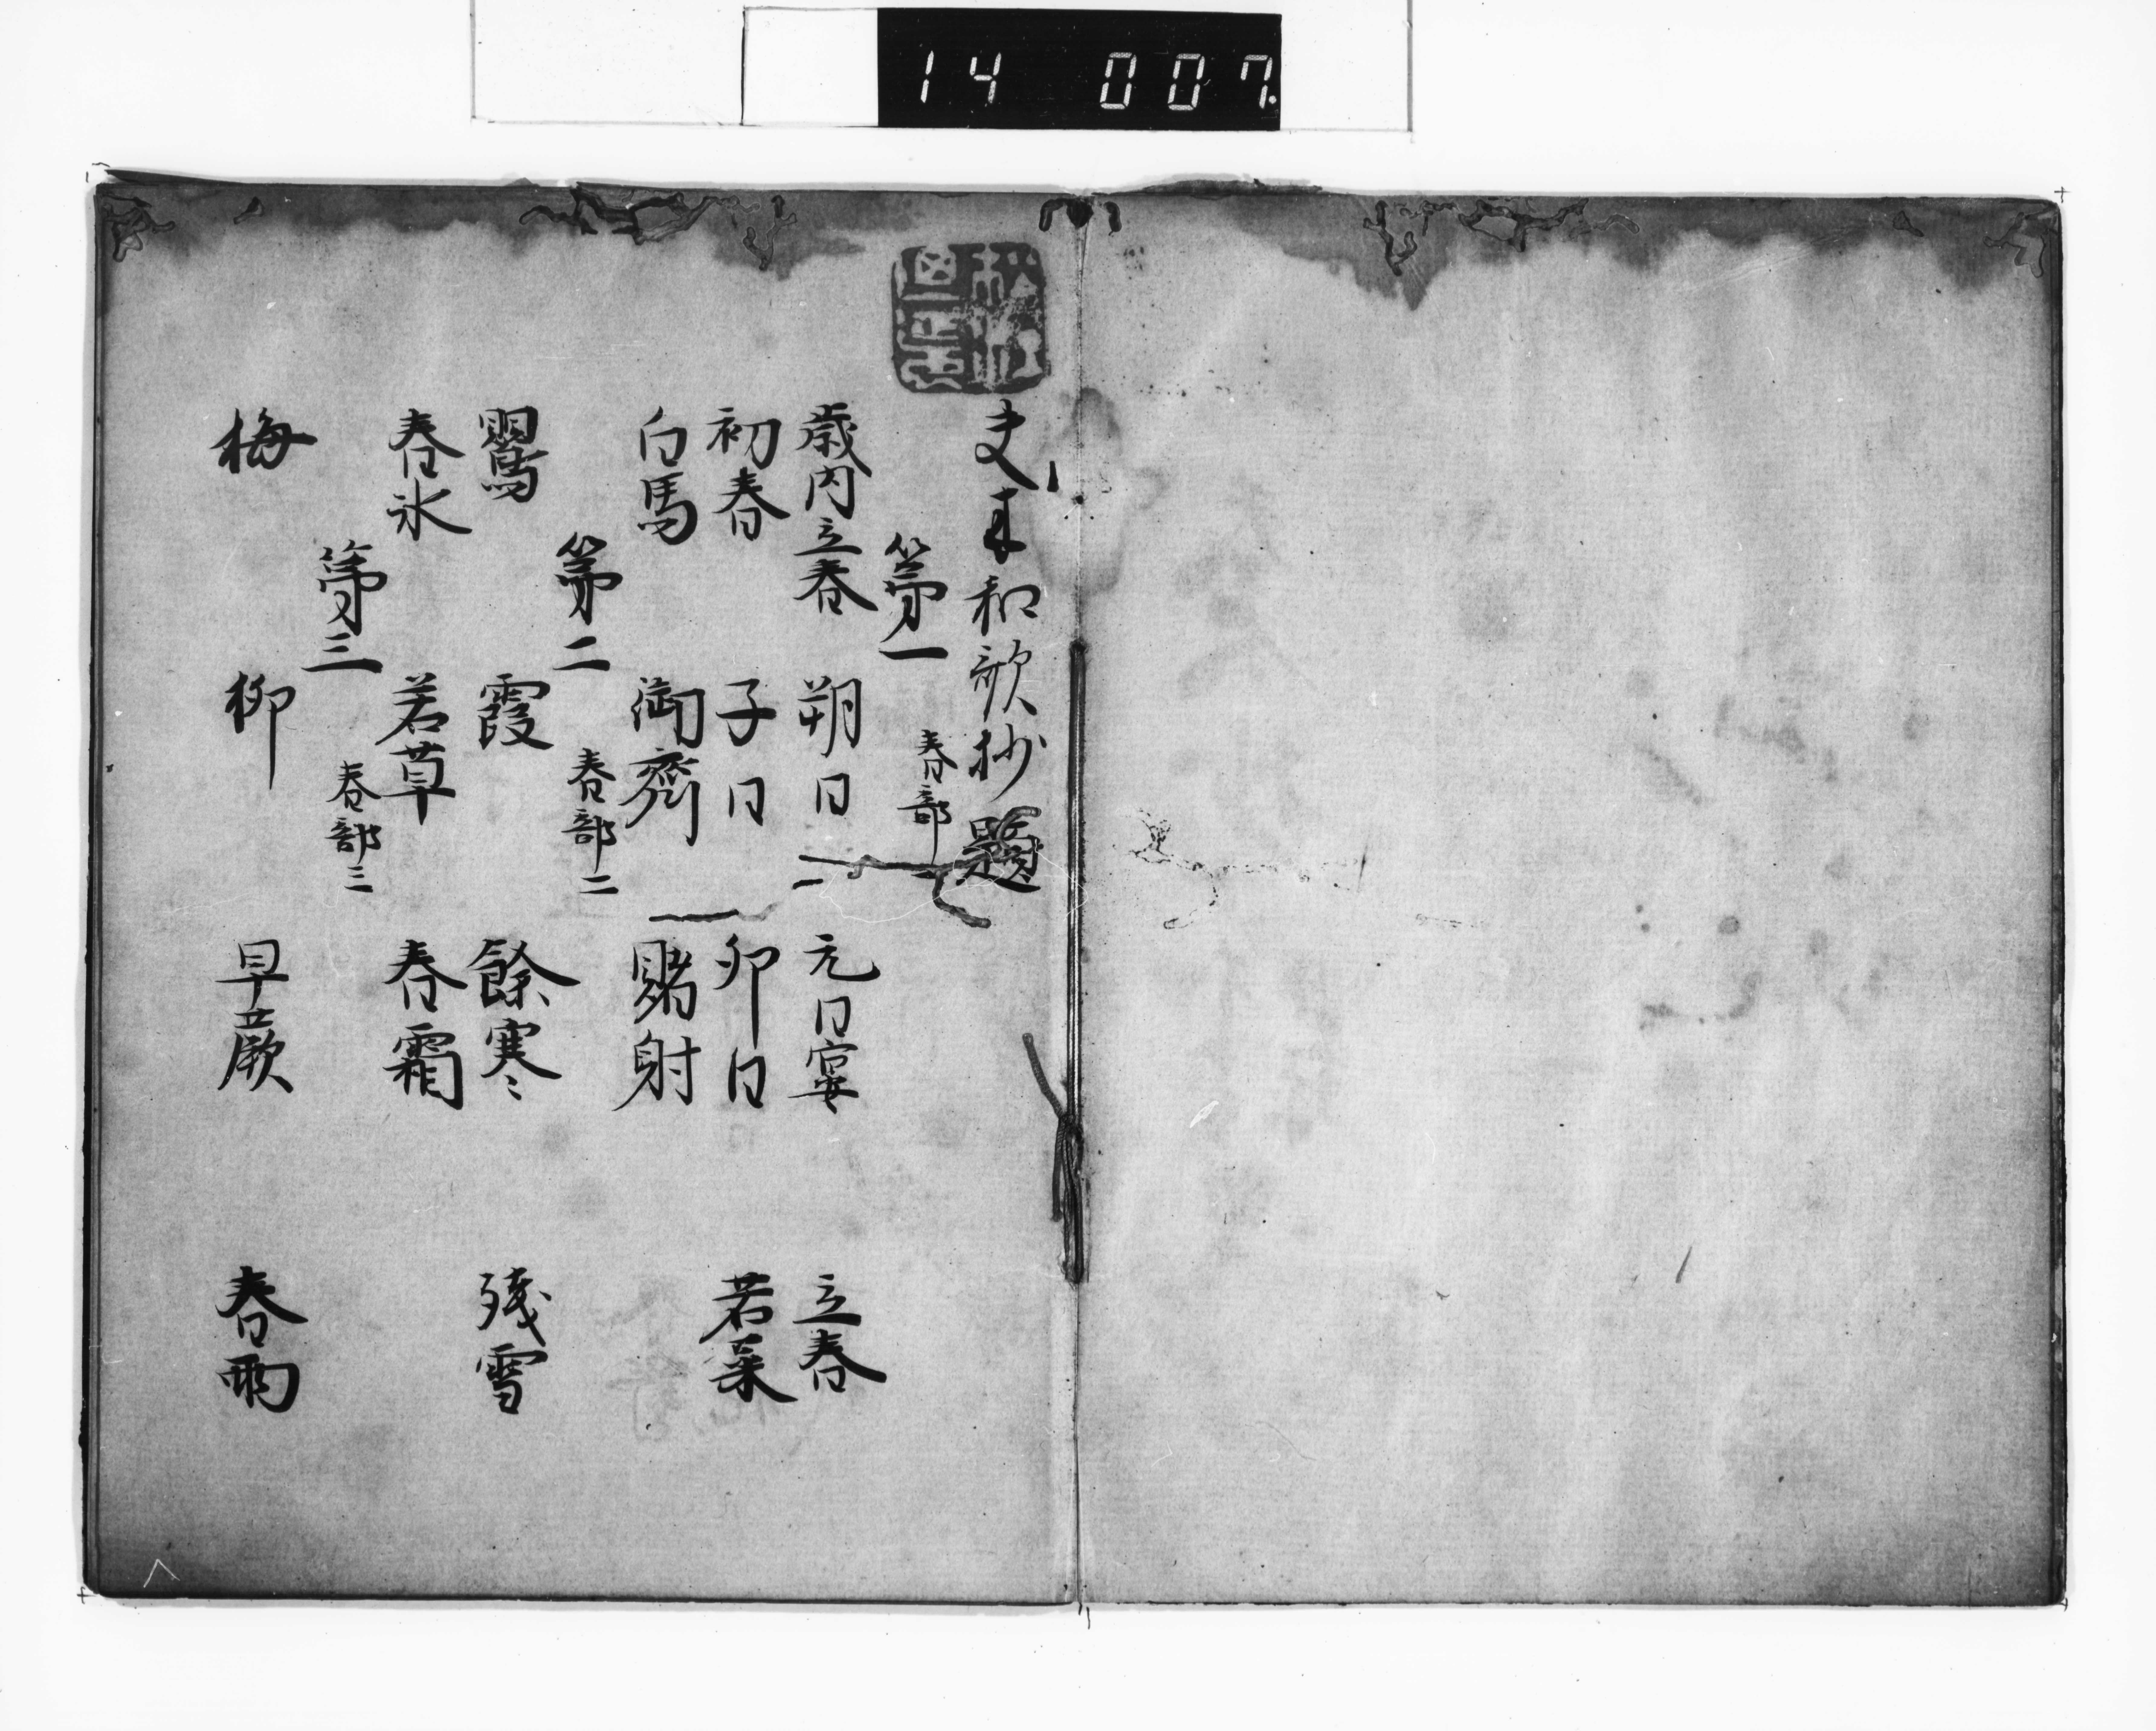 14 007.
夫木和歌抄題
第一 春部一
歳内立春 朔日 元日宴 立春
初春 子日 卯日 若菜
白馬 御齊 賭射
第二 春部二
鸎 霞 餘寒 残雪
春氷 若草 春霜
第三 春部三
梅 柳 早蕨 春雨